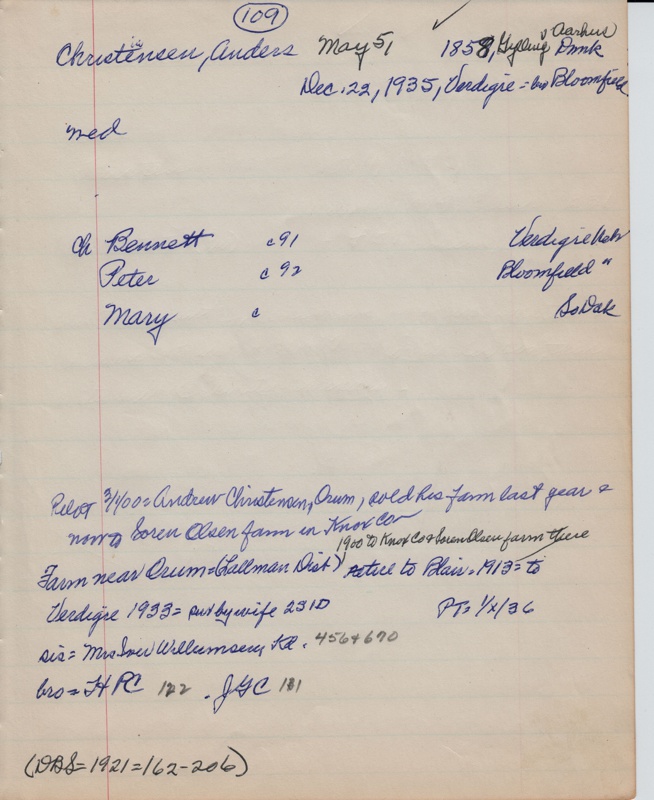 109
Christensen, Anders May 5, 1858, Gylling, Aarhus Dmk
Dec. 22, 1935, Verdigre = bu Bloomfield
med
ch Bennett c 91 Verdigre Neb
Peter c 92 Bloomfield "
Mary c So Dak
Pilot 3/1/00 = Andrew Christensen, Orum, sold his farm last year &
now to Soren Olsen farm in Knox Co
1900 to Knox Co & Soren Olsen farm there
Farm near Orum = (Lallman Dist) retire to Blair = 1913 = to
Verdigre 1933 = sur by wife 2 S 1 D PT = 1/2/36
sis = Mrs Iver Willumsen, Kd. 456 & 670
bro = H P C 122 . J G C 181
(DBS = 1921 = 162-206)